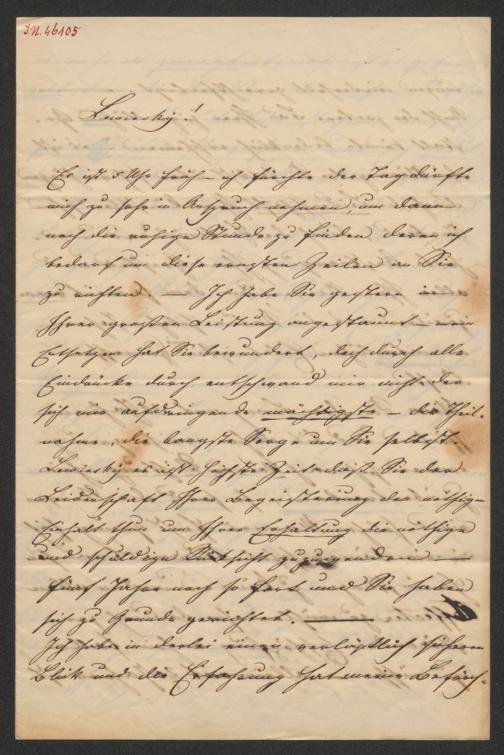 I.N. 46105
Lewinsky!
Es ist 5 Uhr früh – ich fürchte der Tag dürfte
mich zu sehr in Anspruch nehmen, um dann
noch die ruhige Stunde zu finden deren ich
bedarf um diese ernsten Zeilen an Sie
zu richten. — Ich habe Sie gestern in
Ihrer großen Leistung angestaunt – mein
Entsetzen hat Sie bewundert, doch durch alle
Eindrücke durch entschwand mir nicht der
sich mir aufdringende mächtigste – der Theil-
nahme, die bangste Sorge um Sie selbst.
Lewinsky es ist höchste Zeit daß Sie der
Leidenschaft Ihrer Begeisterung den nöthigen
Einhalt thun um Ihrer Erhaltung die nöthige
und schuldige Rücksicht zuzuwenden —
fünf Jahre noch so fort und Sie haben
sich zu Grunde gerichtet. —
Ich habe in derlei einen verläßlich sicheren
Blick und die Erfahrung hat meine Befürch-